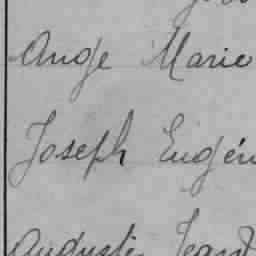 Ange Marie
Joseph Eugén
Auguste Jean